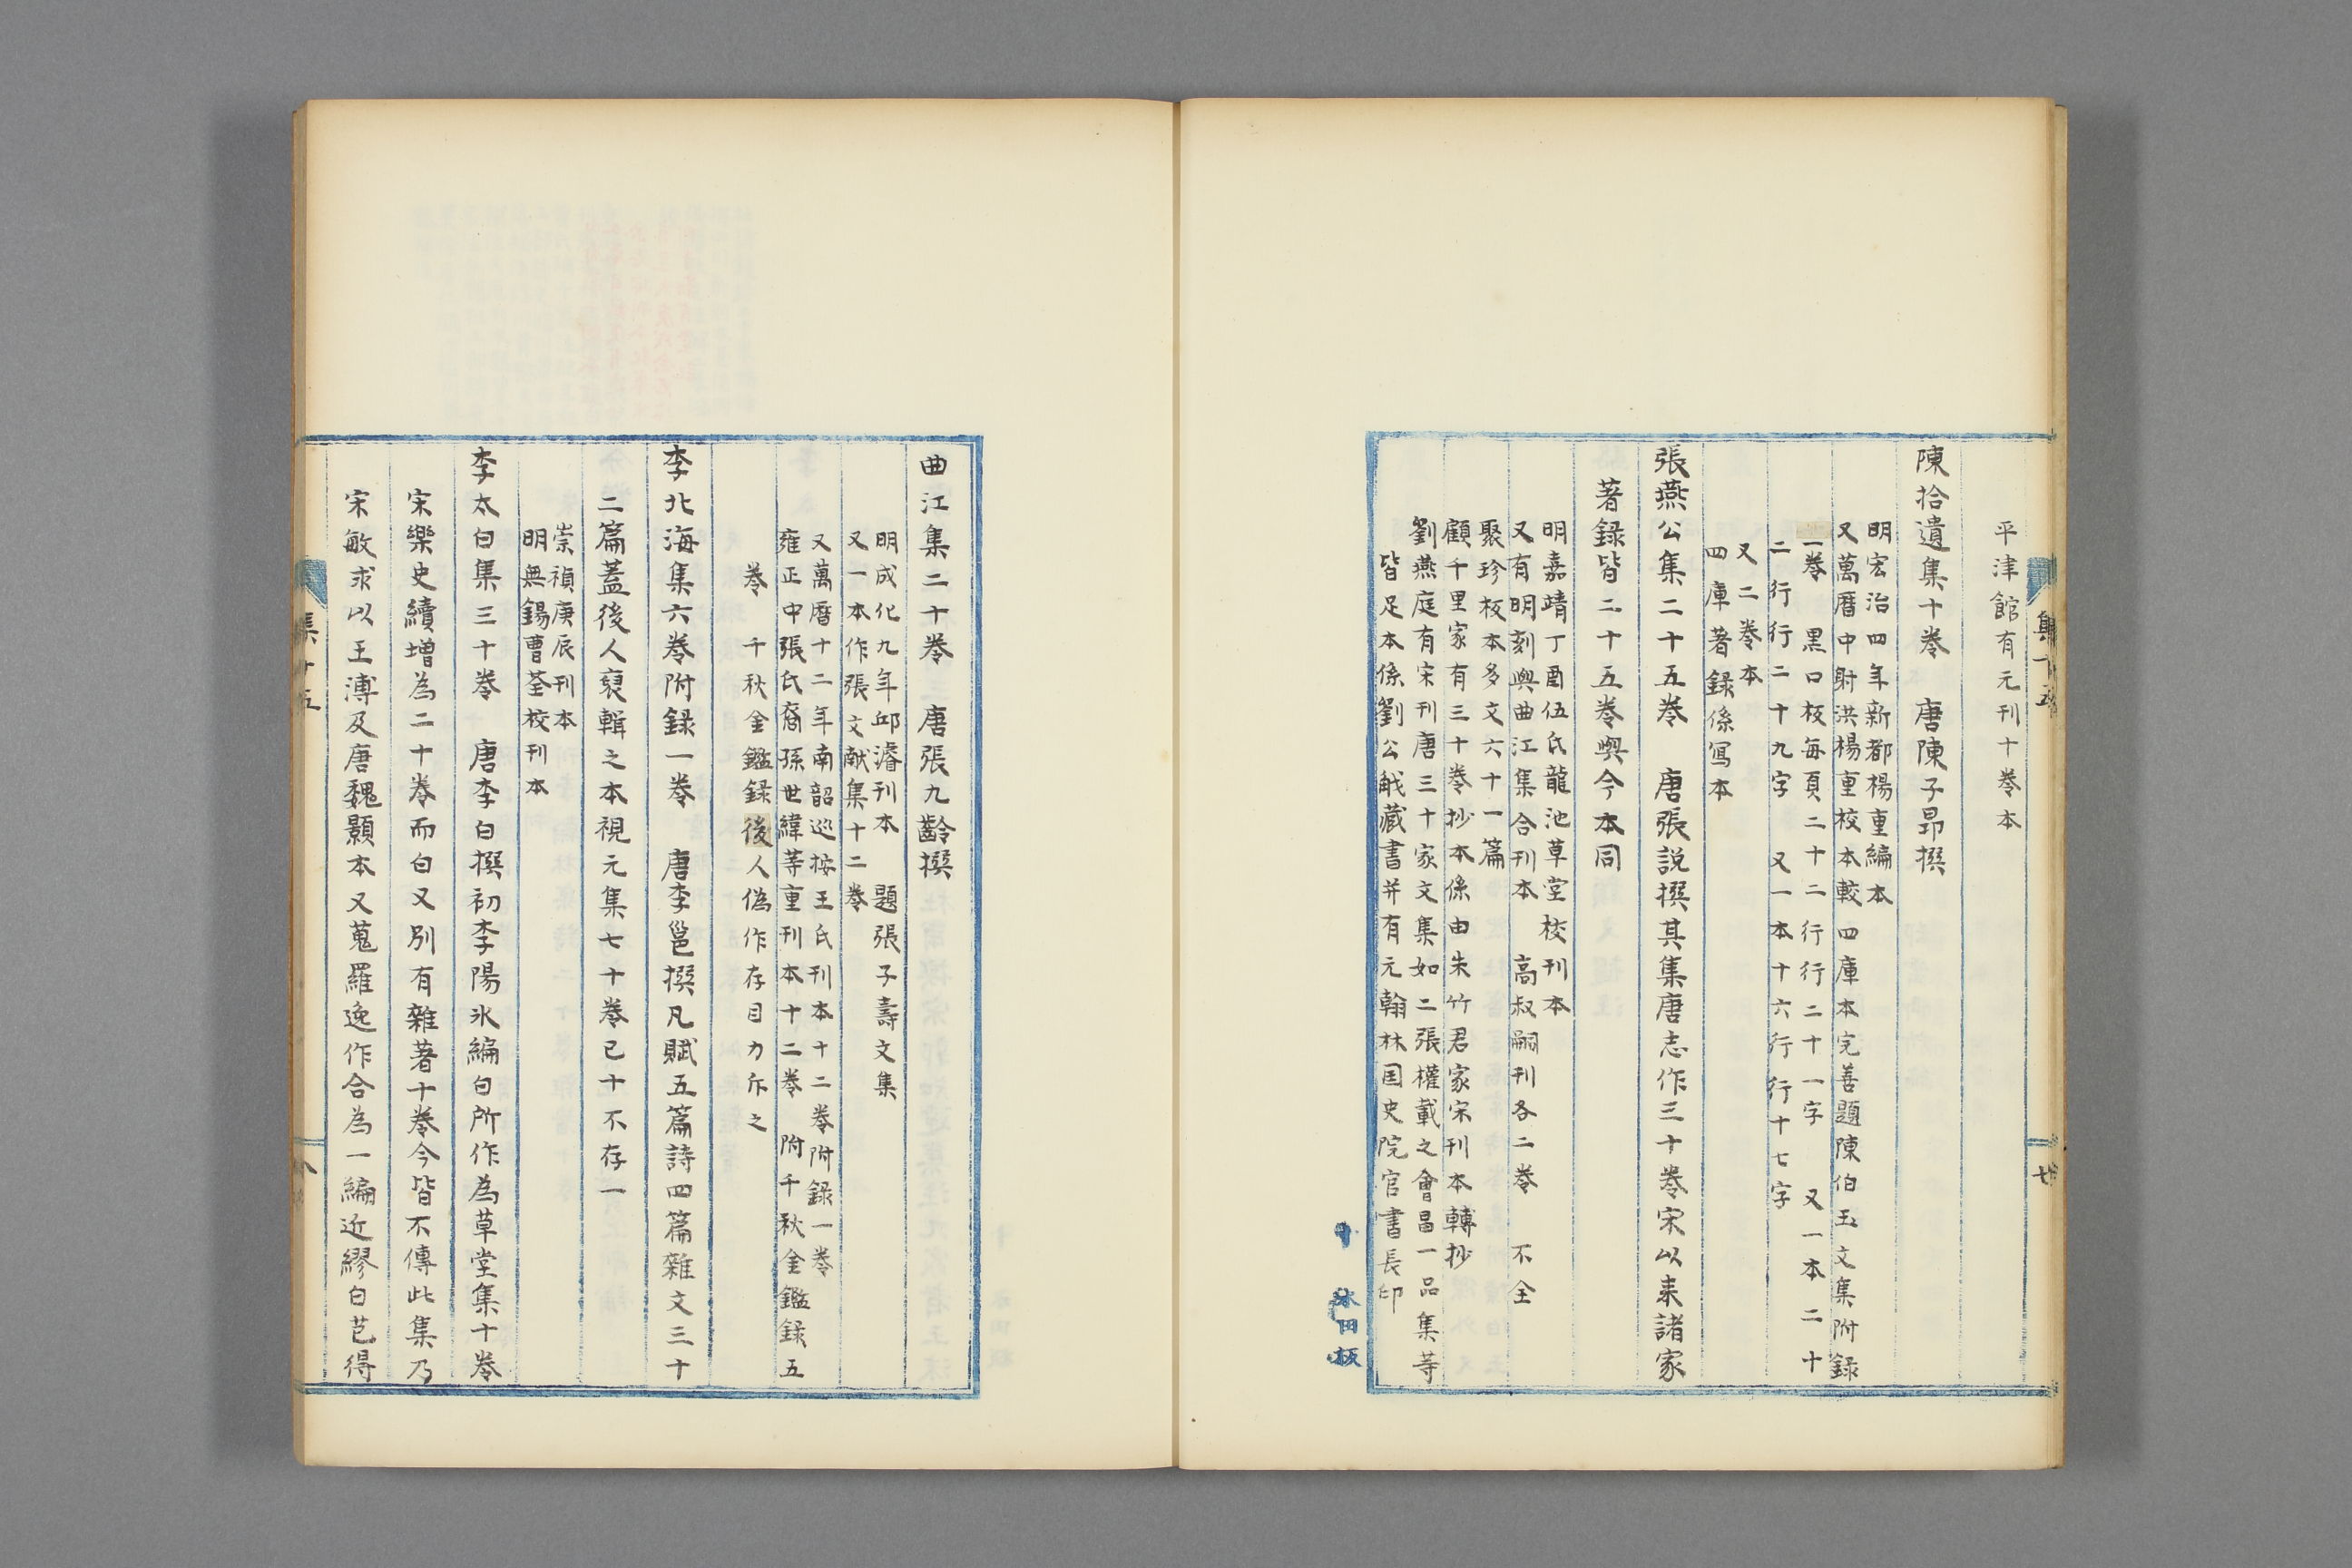 平津館有元刊十卷本
陳拾遺集十卷　唐陳子昻撰
明宏治四年新都楊重編本
又萬曆中射洪楊重校本較四庫本完善題陳伯玉文集附録
一卷　黑口板每頁二十二行行二十一字　又一本二十
二行行二十九字　又一本十六行行十七字
又二卷本
四庫著録係寫本
張燕公集二十五卷　唐張説撰其集唐志作三十卷宋以来諸家
著録皆二十五卷與今本同
明嘉靖丁酉伍氏龍池草堂校刊本
又有明刻與曲江集合刊本　高叔嗣刊各二卷　不全
聚珍板本多文六十一篇
顧千里家有三十卷抄本係由朱竹君家宋刊本轉抄
劉燕庭有宋刊唐三十家文集如二張權載之會昌一品集等
皆足本係劉公㦯藏書并有元翰林国史院官書長印
集十五
七
十
米田板
曲江集二十卷　唐張九齡撰
明成化九年邱濬刊本　題張子壽文集
又一本作張文献集十二卷
又萬曆十二年南韶巡按王氏刊本十二卷附録一卷
雍正中張氏裔孫世緯等重刊本十二卷　附千秋金鑑録五
卷　千秋金鑑録後人偽作存目力斥之
李北海集六卷附録一卷　唐李邕撰凡賦五篇詩四篇雜文三十
二篇蓋後人裒輯之本視元集七十卷已十不存一
崇禎庚辰刊本
明無錫曹荃校刊本
李太白集三十卷　唐李白撰初李陽氷編白所作為草堂集十卷
宋樂史續增為二十卷而白又别有雜著十卷今皆不傳此集乃
宋敏求以王溥及唐魏顥本又蒐羅逸作合為一編近繆曰芑得
集十五
八